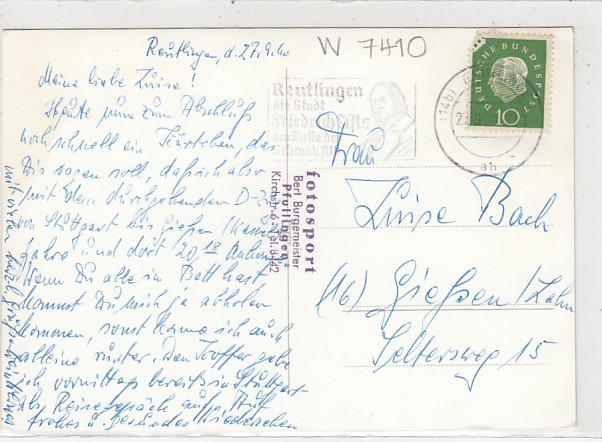 W 7410
Reutlingen, d. 27.9.60
Meine liebe Luise!
Heute nun zum Abschluß
noch schnell ein Kärtchen, das
Dir sagen soll, daß ich also
mit dem durchgehenden D-Zug
von Stuttgart bis Gießen
fahre und dort 20,18 Ankunft.
Wenn Du alle in Bett hast
kommst Du mich ja abholen
kommen, sonst komme ich auch
alleine runter. Den Koffer gebe
ich vormittags bereits in Stuttgart
als Reisegepäck auf. Auf
frohes u. gesundes Wiedersehen
Reutlingen
die Stadt
Friedrich Lists
am Fuße der
Schwäb. Alb
DEUTSCHE BUNDESPOST
10
(14b)
fotosport
Bert Burgemeister
Pfullingen
Kirchstr. 6 - Tel. 8442
Frau
Luise Bach
(16) Gießen/Lahn
Seltersweg 15